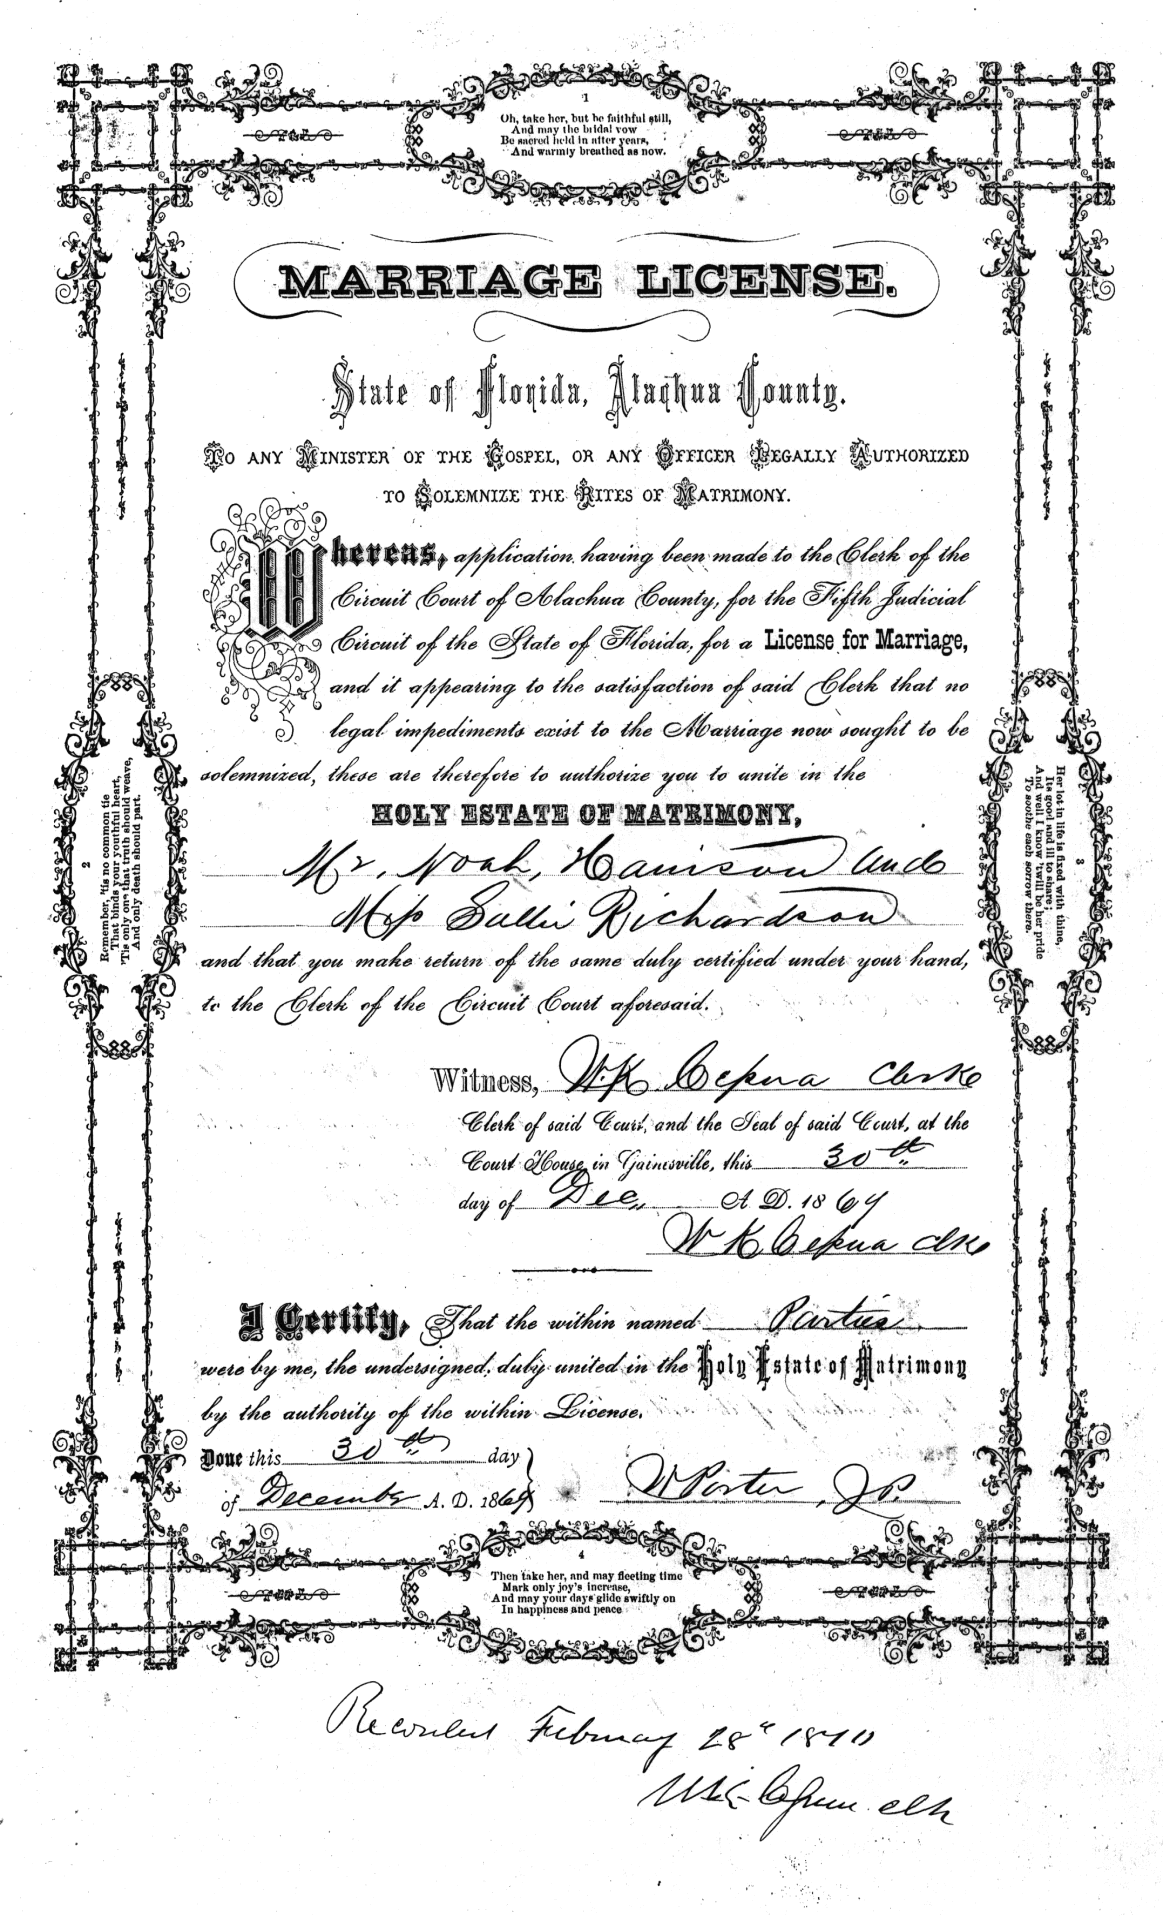 1
Oh, take her, but be faithful still,
And may the bridal vow
Be sacred held in after years,
And warmly breathed as now.
MARRIAGE LICENSE.
State of Florida, Alachua County.
To any Minister of the Gospel, or any Officer Legally Authorized
to Solemnize the Rites of Matrimony.
Whereas, application having been made to the Clerk of the
Circuit Court of Alachua County, for the Fifth Judicial
Circuit of the State of Florida, for a License for Marriage,
and it appearing to the satisfaction of said Clerk that no
legal impediments exist to the Marriage now sought to be
solemnized, these are therefore to authorize you to unite in the
HOLY ESTATE OF MATRIMONY,
Mr, Noah, Harrison and
Miss Sallie Richardson
and that you make return of the same duly certified under your hand,
to the Clerk of the Circuit Court aforesaid.
Witness, W.K. Cessna Clerk
Clerk of said Court, and the Seal of said Court, at the
Court House in Gainesville, this 30th
day of Dec, A. D. 1869
W K Cessna Clk
I Certify, That the within named Parties
were by me, the undersigned, duly united in the Holy Estate of Matrimony
by the authority of the within License.
Done this 30th day
of December A. D. 1869
W Porter, J.P.
2
Remember, 'tis no common tie
That binds your youthful heart,
'Tis only one that truth should weave,
And only death should part.
3
Her lot in life is fixed with thine,
Its good and ill to share;
And well I know 'twill be her pride
To soothe each sorrow there.
4
Then take her, and may fleeting time
Mark only joy's increase,
And may your days glide swiftly on
In happiness and peace
Recorded February 28" 1870
W.K. Cessna clk